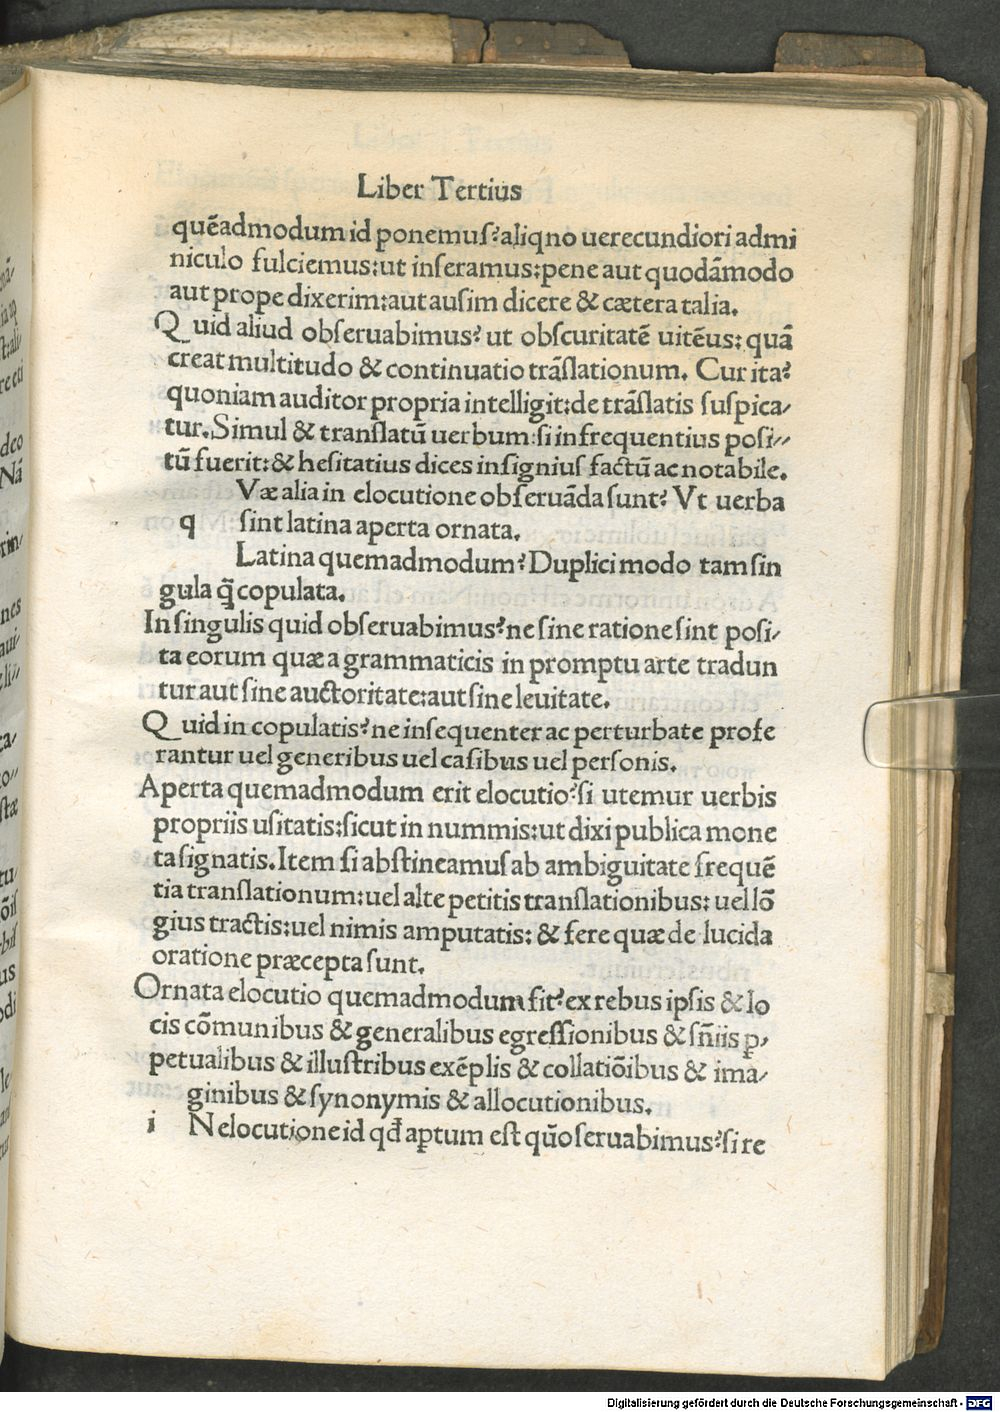 Liber Tertius
quēadmodum id ponemus? aliqno uerecundiori admi
niculo fulciemus: ut inseramus: pene aut quodāmodo
aut prope dixerim: aut ausim dicere & cætera talia.
Quid aliud obseruabimus? ut obscuritatē uitēus: quā
creat multitudo & continuatio trāslationum. Cur ita?
quoniam auditor propria intelligit: de trāslatis suspica/
tur. Simul & translatū uerbum: si infrequentius posi//
tū fuerit: & hesitatius dices insignius factū ac notabile.
Væ alia in elocutione obseruāda sunt? Vt uerba
q sint latina aperta ornata.
Latina quemadmodum? Duplici modo tam sin
gula q̄ copulata.
In singulis quid obseruabimus? ne sine ratione sint posi/
ta eorum quæ a grammaticis in promptu arte tradun
tur aut sine auctoritate: aut sine leuitate.
Quid in copulatis? ne insequenter ac perturbate profe
rantur uel generibus uel casibus uel personis.
Aperta quemadmodum erit elocutio? si utemur uerbis
propriis usitatis: sicut in nummis: ut dixi publica mone
ta signatis. Item si abstineamus ab ambiguitate frequē
tia translationum: uel alte petitis translationibus: uel lō
gius tractis: uel nimis amputatis: & fere quæ de lucida
oratione præcepta sunt.
Ornata elocutio quemadmodum fit? ex rebus ipsis & lo
cis cōmunibus & generalibus egressionibus & sn̄iis ꝑ/
petualibus & illustribus exēplis & collatiōibus & ima/
ginibus & synonymis & allocutionibus.
i N elocutione id qđ aptum est qūo seruabimus? si re
Digitalisierung gefördert durch die Deutsche Forschungsgemeinschaft - DFG